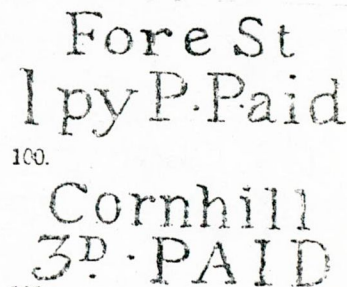 Fore St
1 py P. Paid
100.
Cornhill
3D. · PAID